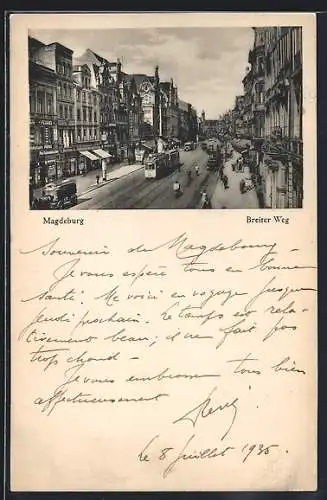 Magdeburg
Breiter Weg
Souvenir de Magdebourg -
Je vous espère tous en bonne
santé. Me voici en voyage jusqu
jeudi prochain. Le temps est rela-
tivement beau; il ne fait pas
trop chaud -
Je vous embrasse tous bien
affectueusement
René
Le 8 Juillet 1935